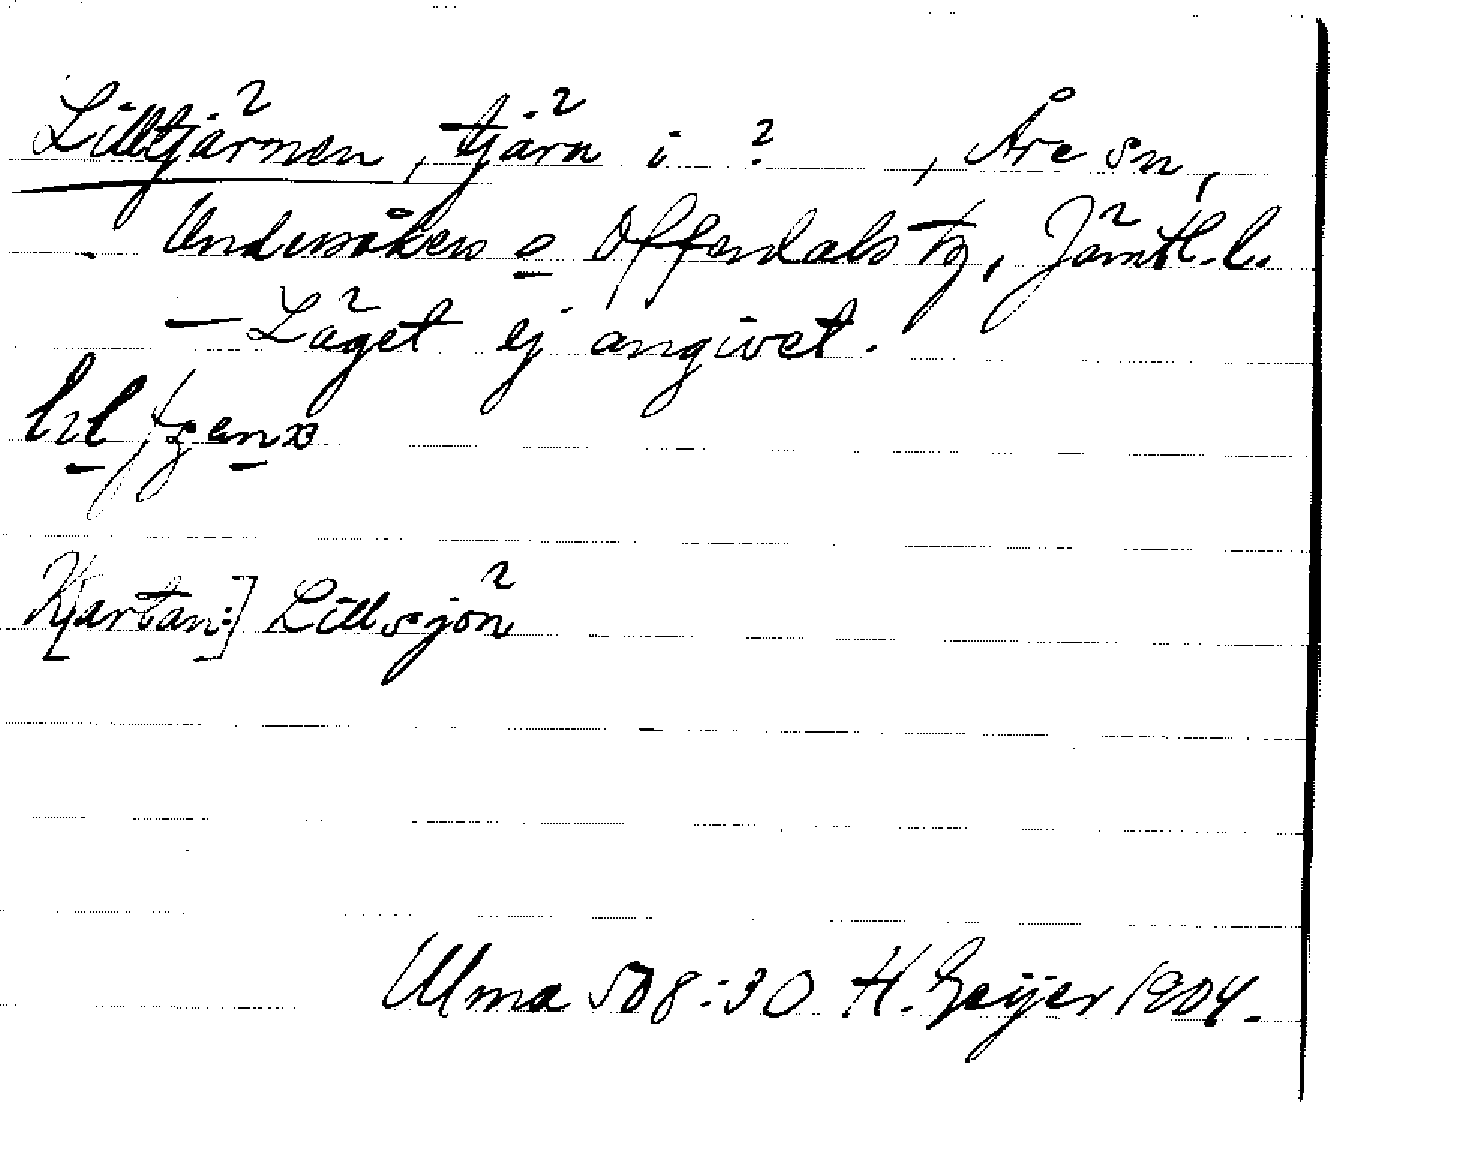 Lilltjärnen, tjärn i ?, Åre sn,
Undersåkers o Offerdals tg, Jämtl. l.
— Läget ej angivet.
Kartan:] Lillsjön
Ulma 508:30 H. Geijer 1904.